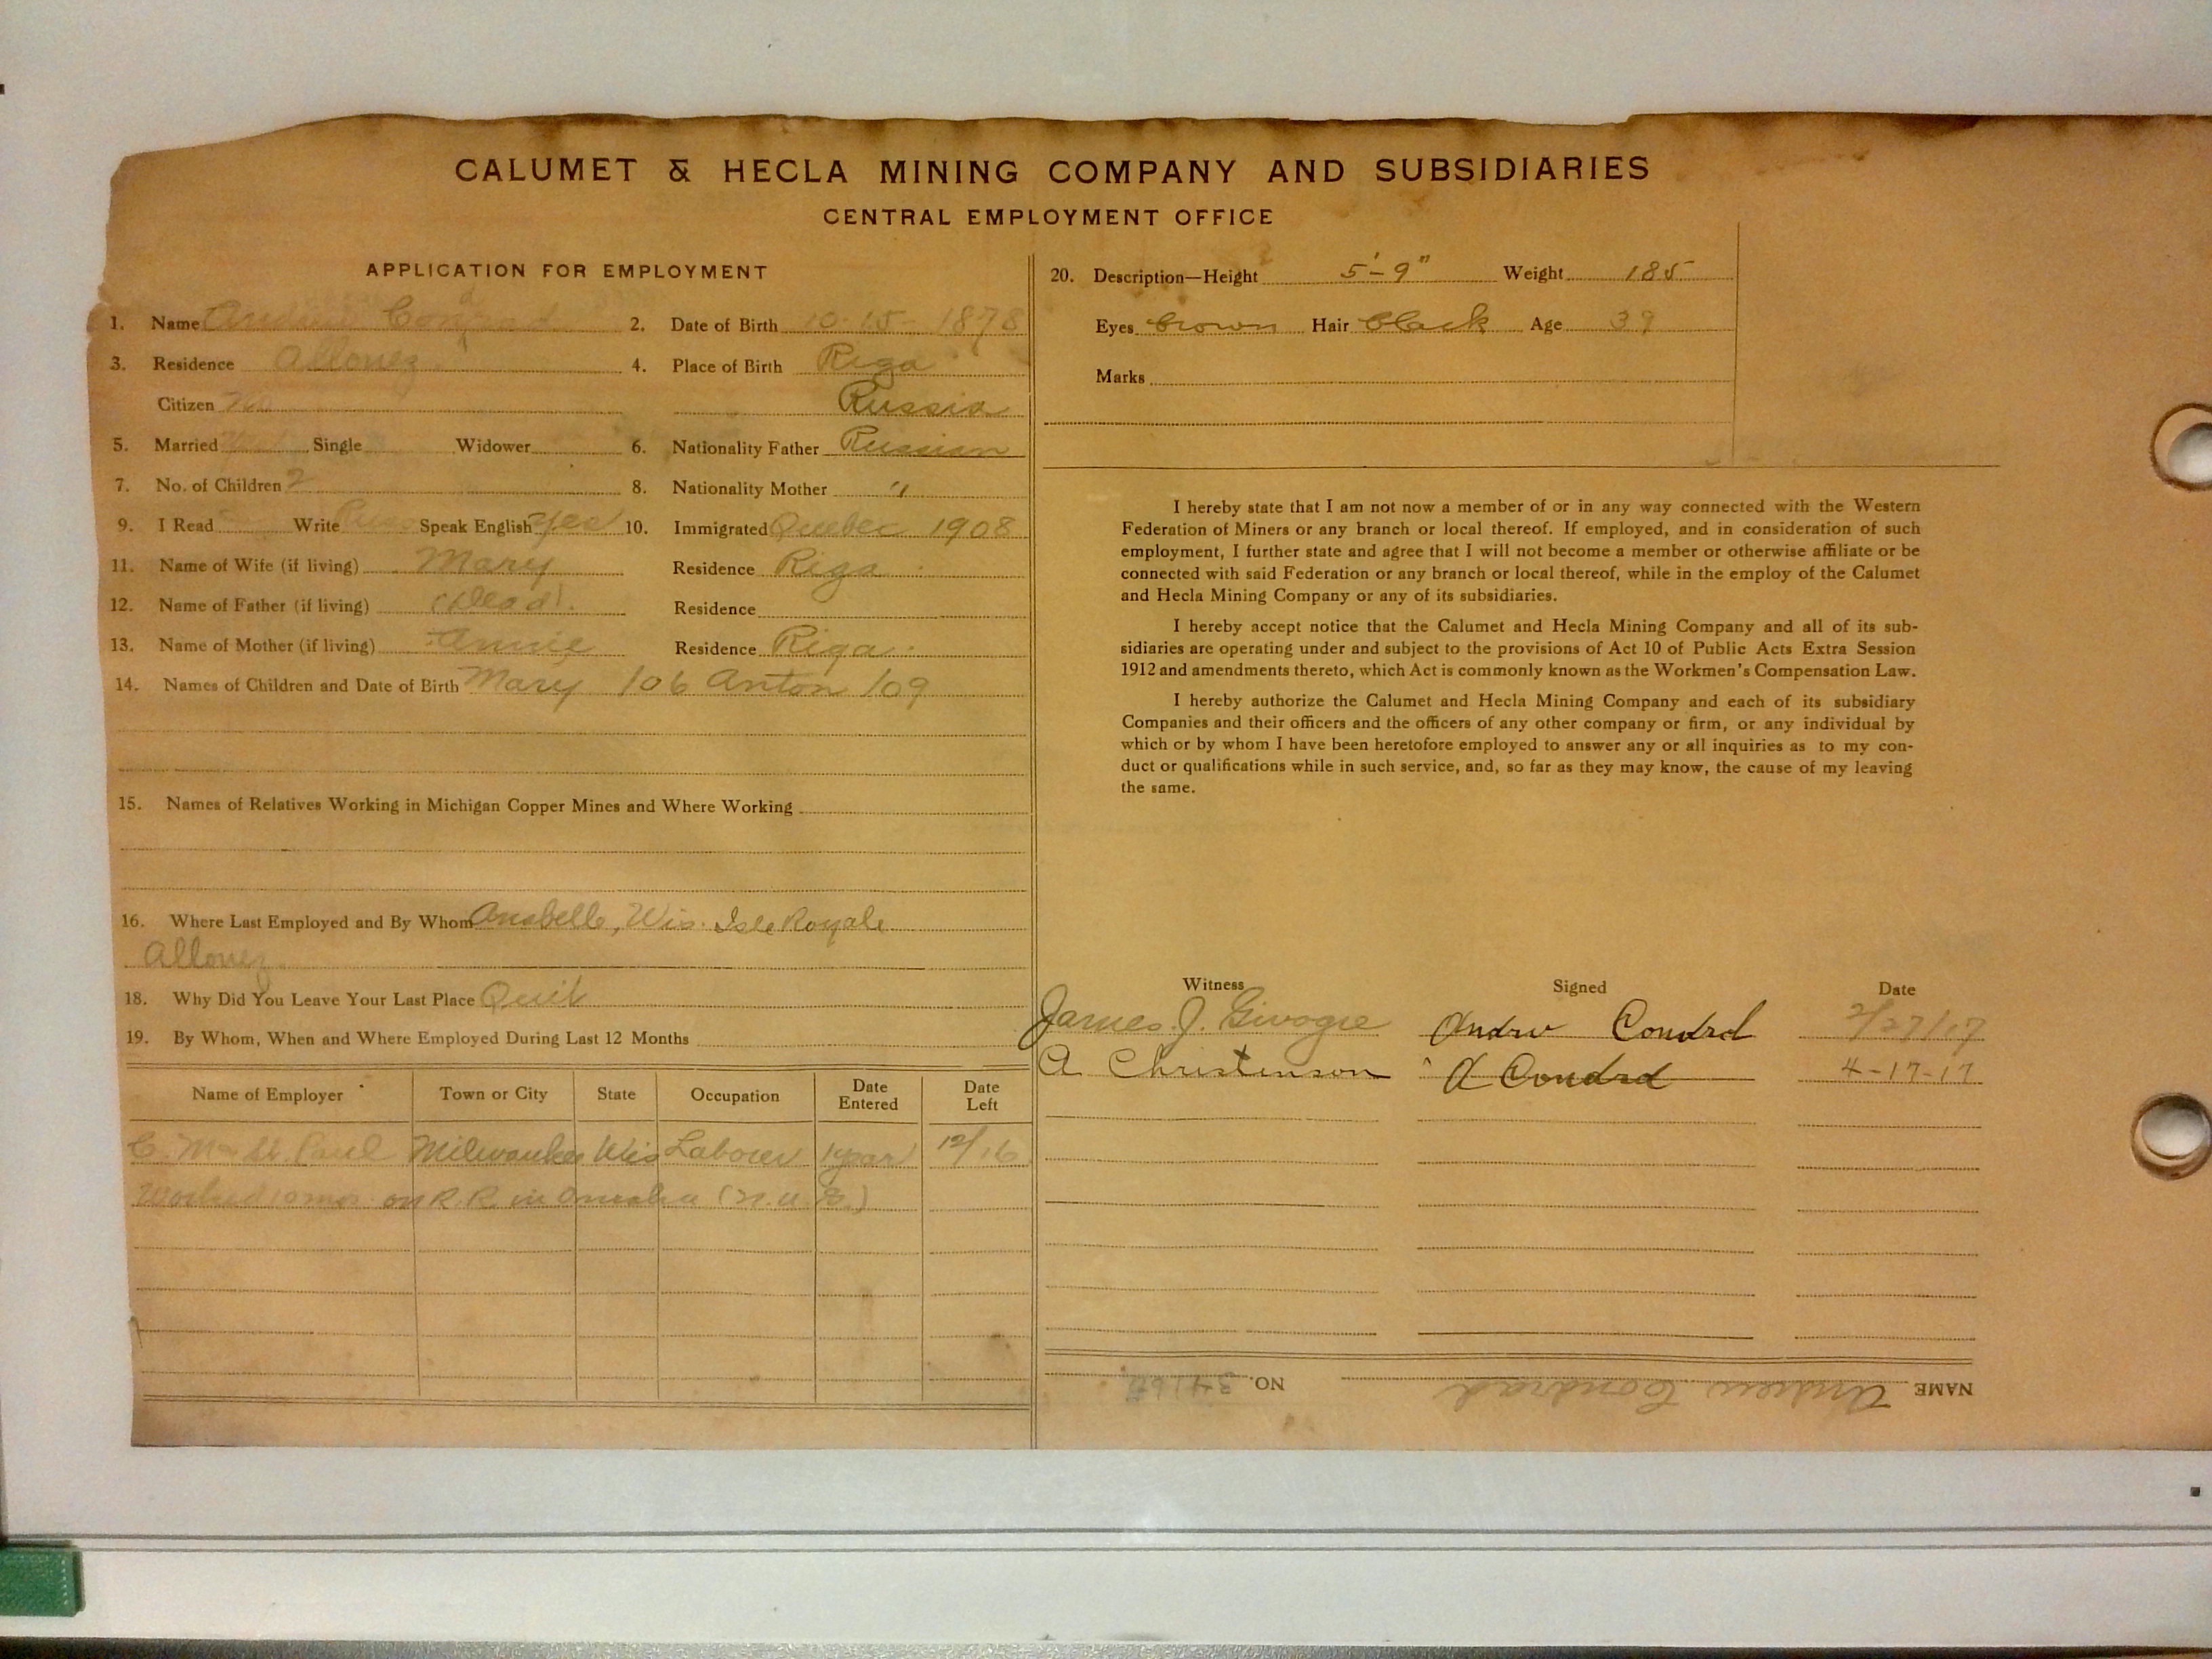 CALUMET & HECLA MINING COMPANY AND SUBSIDIARIES
CENTRAL EMPLOYMENT OFFICE
APPLICATION FOR EMPLOYMENT
1. Name Andrew Conrad 2. Date of Birth 10-15-1878
3. Residence Allouez 4. Place of Birth Riga
Citizen No Russia
5. Married Single Widower 6. Nationality Father Russian
7. No. of Children 2 8. Nationality Mother "
9. I Read Write Speak English Yes 10. Immigrated Quebec 1908
11. Name of Wife (if living) Mary Residence Riga
12. Name of Father (if living) (Dead). Residence
13. Name of Mother (if living) Annie Residence Riga.
14. Names of Children and Date of Birth Mary /06 Anton /09
15. Names of Relatives Working in Michigan Copper Mines and Where Working
16. Where Last Employed and By Whom Anabelle, Wis. Isle Royale
Allouez
18. Why Did You Leave Your Last Place Quit
19. By Whom, When and Where Employed During Last 12 Months
Name of Employer Town or City State Occupation Date Entered Date Left
C. M & St. Paul Milwaukee Wis Laborer 1 year 12/16
Worked 10 mos. on R.R. in Omaha
20. Description—Height 5'-9" Weight 185
Eyes brown Hair black Age 39
Marks
I hereby state that I am not now a member of or in any way connected with the Western
Federation of Miners or any branch or local thereof. If employed, and in consideration of such
employment, I further state and agree that I will not become a member or otherwise affiliate or be
connected with said Federation or any branch or local thereof, while in the employ of the Calumet
and Hecla Mining Company or any of its subsidiaries.
I hereby accept notice that the Calumet and Hecla Mining Company and all of its sub-
sidiaries are operating under and subject to the provisions of Act 10 of Public Acts Extra Session
1912 and amendments thereto, which Act is commonly known as the Workmen's Compensation Law.
I hereby authorize the Calumet and Hecla Mining Company and each of its subsidiary
Companies and their officers and the officers of any other company or firm, or any individual by
which or by whom I have been heretofore employed to answer any or all inquiries as to my con-
duct or qualifications while in such service, and, so far as they may know, the cause of my leaving
the same.
Witness Signed Date
James J. Andrw Condrd 2/27/17
A Christenson A Condrd 4-17-17
NAME Andrew Conrad NO.